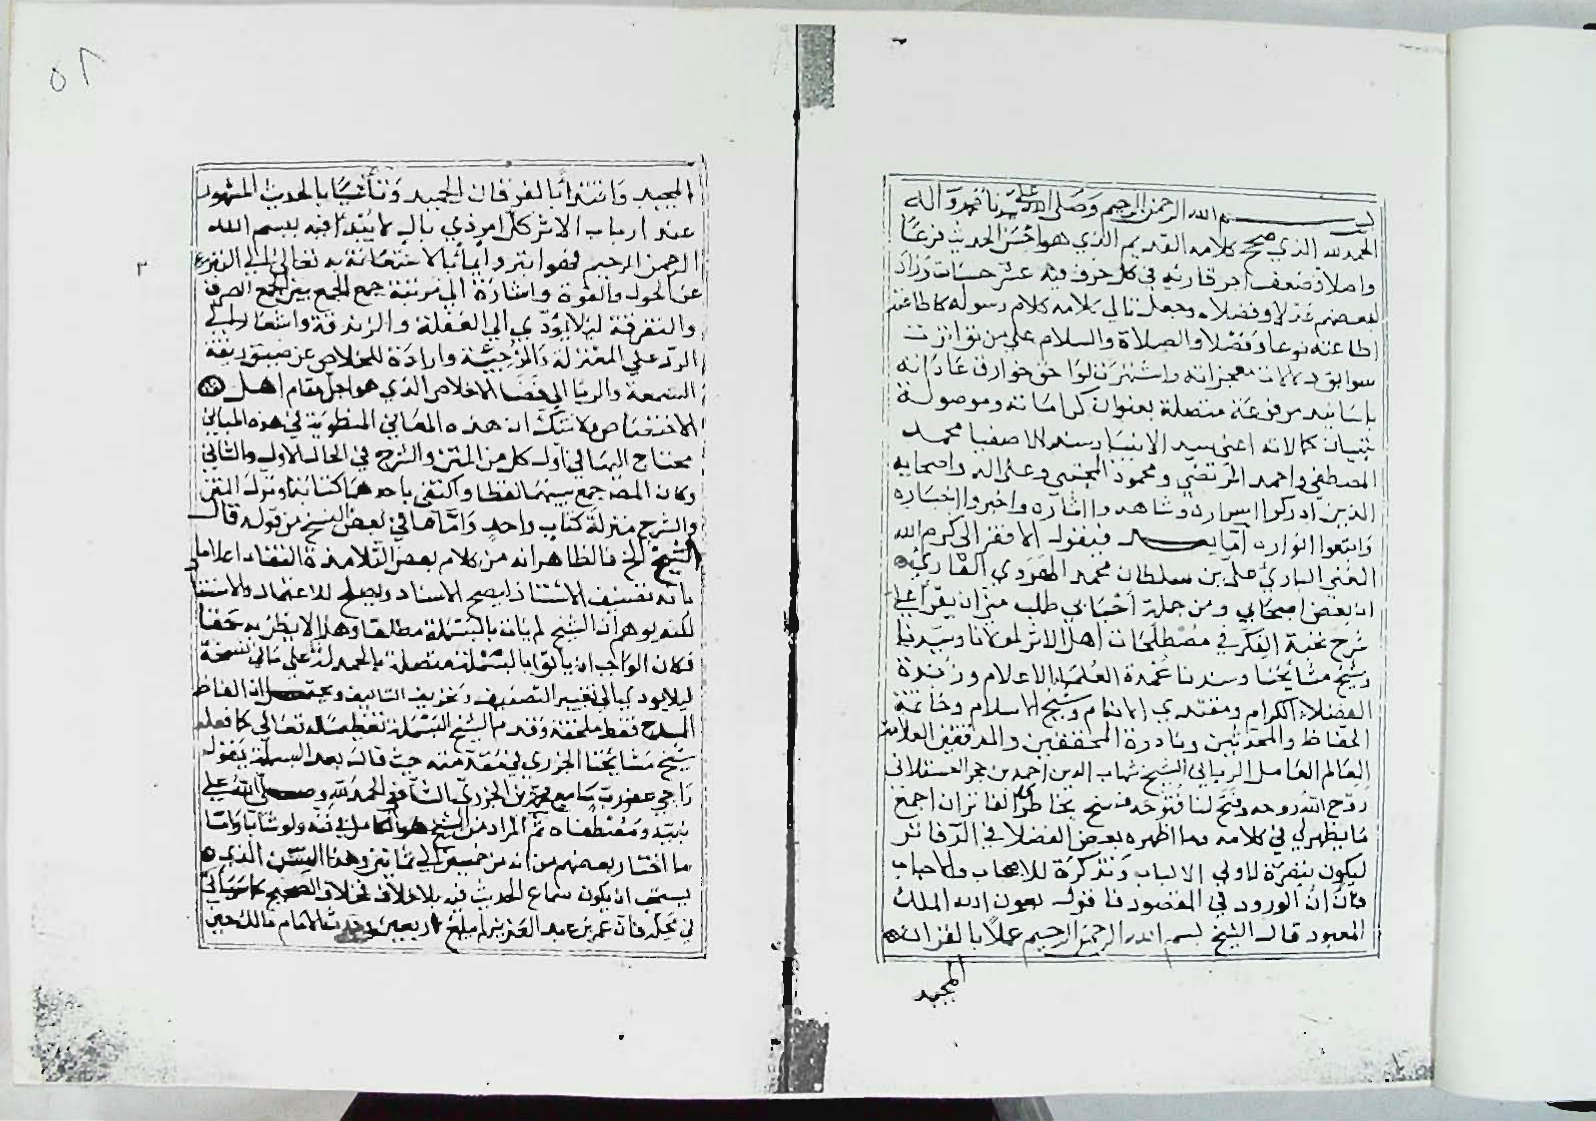 بسم الله الرحمن الرحيم وصلى الله على سيدنا محمد وآله
الحمد لله الذي صحح كلامه القديم الذي هو أحسن الحديث نزعا
واصلا وضعف أجر قارئه في كل حرف فيه عشر حسنات وزاد
لبعضهم عدلا وفضلا وجعل تالي كلامه كلام رسوله كا طاعته
إطاعته نوعا وفضلا والصلاة والسلام على من تواترت
سوابق دلالات معجزاته واشتهرت لواحق خوارق عاداته
بأسانيد مرفوعة متصلة بعنوان كراماته وموصولة
بتبيان كمالاته أعني سيد الأنبيا وسند الاصفيا محمد
المصطفى وأحمد المرتضى ومحمود المجتبى وعلى اله واصحابه
الذين أدركوا اسراره وشاهدوا آثاره واخبروا اخباره
واتبعوا انواره أما بعد فيقول الافقر الى كرم الله
الغني الباري علي بن سلطان محمد الهروي القاري
ان بعض اصحابي ومن جملة أحبابي طلب مني ان يقرأ علي
شرح نخبة الفكر في مصطلحات أهل الاثر لمولانا وسيدنا
وشيخ مشايخنا وسندنا عمدة العلماء الاعلام وزبدة
الفضلاء الكرام ومقتدى الانام وشيخ الاسلام وخاتمة
الحفاظ والمحدثين ونادرة المحققين والمدققين العلامة
العالم العامل الرباني الشيخ شهاب الدين أحمد بن حجر العسقلاني
روح الله روحه وفتح لنا فتوحه فسنح بخاطري الفاتر ان اجمع
ما يظهر لي في كلامه وما اظهره بعض الفضلا في الدفاتر
ليكون تبصرة لاولي الالباب وتذكرة للاصحاب والاحباب
فآن أن الورود في المقصود فاقول بعون الله الملك
المعبود قال الشيخ بسم الله الرحمن الرحيم عملا بالقران
المجيد
٥٢
٢
المجيد واقتدا بالفرقان الحميد وتأسيا بالحديث المشهور
عند ارباب الاثر كل امر ذي بال لا يبتدأ فيه ببسم الله
الرحمن الرحيم فهو ابتر وايماء بالاستعانة به تعالى الى التبري
عن الحول والقوة واشارة الى مرتبة جمع الجمع بين الجمع الصرف
والتفرقة ليلا يؤدي الى الغفلة والزندقة واشعارا الى
الرد على المعتزلة والمرجيئة وارادة للخلاص عن ضيق ربقة
السمعة والريا الى فضا الاخلاص الذي هو اجل مقام اهل
الاختصاص ولا شك ان هذه المعاني المنطوية في هذه المباني
محتاج اليها في اول كل من المتن والشرح في الحال الاول والثاني
وكان المصـ جمع بينهما لفظا واكتفى باحدهما كتابة او نزل المتن
والشرح منزلة كتاب واحد وأما ما في بعض النسخ من قوله قال
الشيخ الخ فالظاهر انه من كلام بعض التلامذة النقاد اعلاما
بانه تصنيف الاستاذ ليصح الاسناد ويصلح للاعتماد والاستناد
لكنه يوهم أن الشيخ لم يات بالبسملة مطلقا وهذا لا يظن به حقا
فكان الواجب ان ياتوا بالبسملة متصلة بالحمدلة على ما في نسخة
ليلا يودي الى تغيير التصنيف وتحريف التاليف ان الفاظ
المدح فقط ملحقة وقدم الشيخ البسملة تعظيما لله تعالى كما فعله
شيخ مشايخنا الجزري في مقدمته حيث قال بعد البسملة يقول
راجي عفو رب سامع محمد بن الجزري الشافعي الحمد لله وصلى الله على
نبيه ومصطفاه ثم المراد من الشيخ هو الكامل في فنه ولو شابا وأما
ما اختار بعضهم من انه من خمسين الى ثمانين وهذا السن الذي
يستحب ان يكون سماع الحديث فيه بلا خلاف
في محله فان عمر بن عبد العزيز لم يبلغ الاربعين وحدث الامام مالك حين